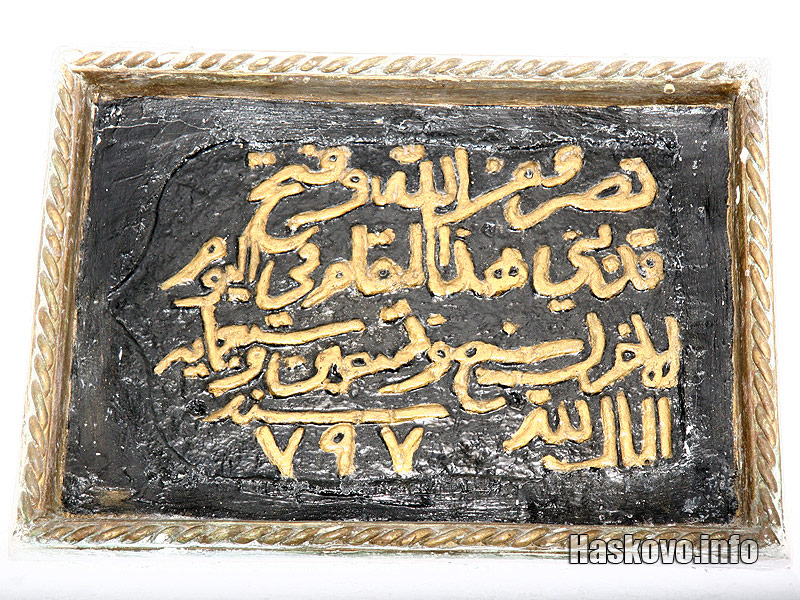 نصر من الله و فتح
قد بني هذا المقام في اليوم
الاخر لسنه وتسعين وسبعمايه
سنه
٧٩٧
Haskovo.info